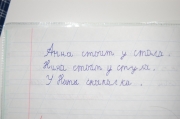 Анна стоит у стола.
Нина стоит у стула.
У Пети скакалка.